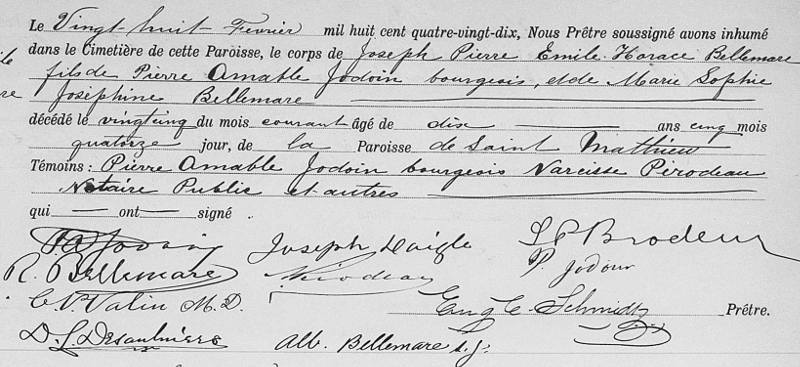 Le Vingt-huit Fevrier mil huit cent quatre-vingt-dix, Nous Prêtre soussigné avons inhumé
dans le Cimetière de cette Paroisse, le corps de Joseph Pierre Emile Horace Bellemare
fils de Pierre Amable Jodoin bourgeois, et de Marie Sophie
Josephine Bellemare
décédé le vingtcinq du mois courant âgé de dix ans cinq mois
quatorze jour, de la Paroisse de Saint Mathieu
Témoins : Pierre Amable Jodoin bourgeois Narcisse Perodeau
Notaire Public et autres
qui ont signé .
P A Jodoin Joseph Daigle L P Brodeur
R. Bellemare N Perodeau P. Jodoin
Valin M.D. Eug E. Schmidt Prêtre.
D. L. Desaulniers Alb. Bellemare s.j.